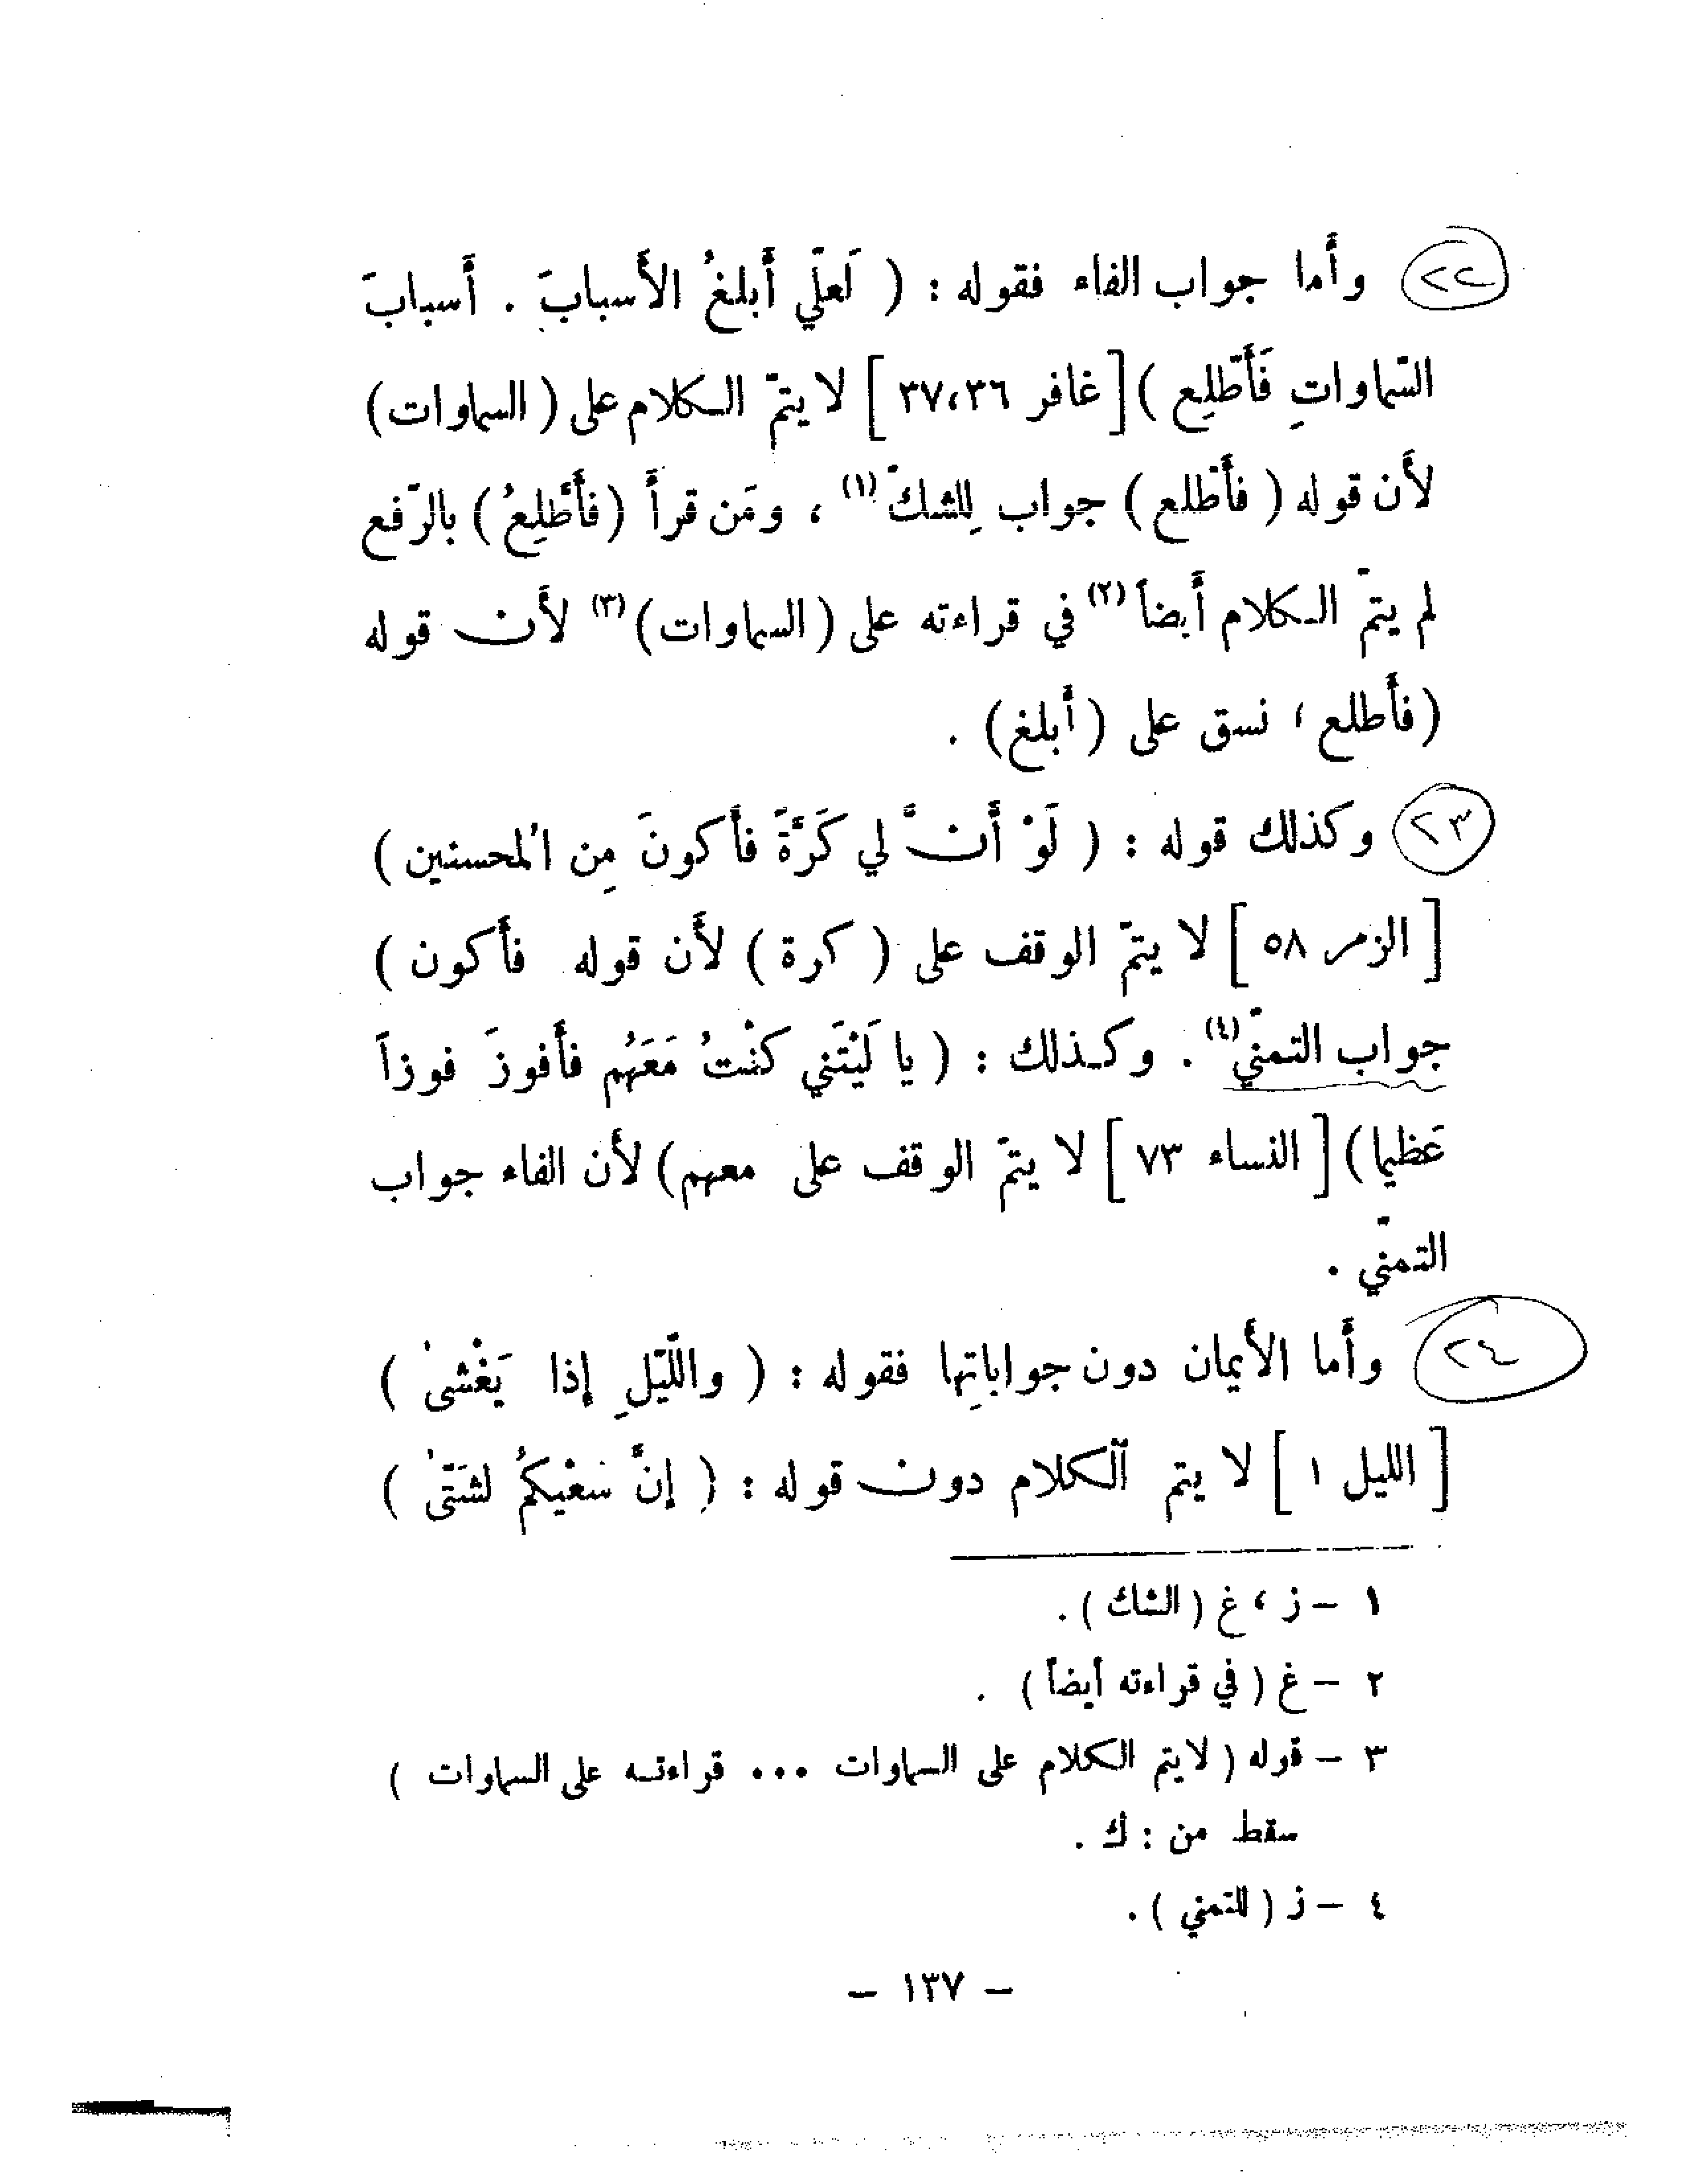 ٢٢ وأما جواب الفاء فقوله : ( لَعلّي أَبلغُ الأَسبابَ . أَسبابَ
السّماواتِ فَأَطّلِع ) [ غافر ٣٦،٣٧ ] لا يتمّ الكلام على ( السماوات )
لأَن قوله ( فأَطّلع ) جواب لِلشكّ (١) ، ومَن قرأَ ( فأَطَّلِعُ ) بالرّفع
لم يتمّ الكلام أَيضاً (٢) في قراءته على ( السماوات ) (٣) لأَن قوله
( فأَطلع ؛ نسق على ( أَبلغ ) .
٢٣ وكذلك قوله : ( لَوْ أَنَّ لي كَرَّةً فأَكونَ مِن المحسنين )
[ الزمر ٥٨ ] لا يتمّ الوقف على ( كرة ) لأَن قوله فأَكون )
جواب التمنّي (٤) . وكذلك : ( يا لَيْتَني كنْتُ مَعَهُم فأَفوزَ فوزاً
عَظيما ) [ النساء ٧٣ ] لا يتمّ الوقف على معهم ) لأَن الفاء جواب
التمنّي .
٢٤ وأَما الأَيمان دون جواباتِها فقوله : ( واللّيْلِ إذا يَغْشىٰ )
[ الليل ١ ] لا يتم الكلام دون قوله : ( إنَّ سَعْيكمُ لشَتّىٰ )
١ – ز ، غ ( الشك ) .
٢ – غ ( في قراءته أيضاً ) .
٣ – قوله ( لا يتم الكلام على السماوات ... قراءته على السماوات )
سقط من : ك .
٤ – ز ( للتمني ) .
– ١٣٧ –